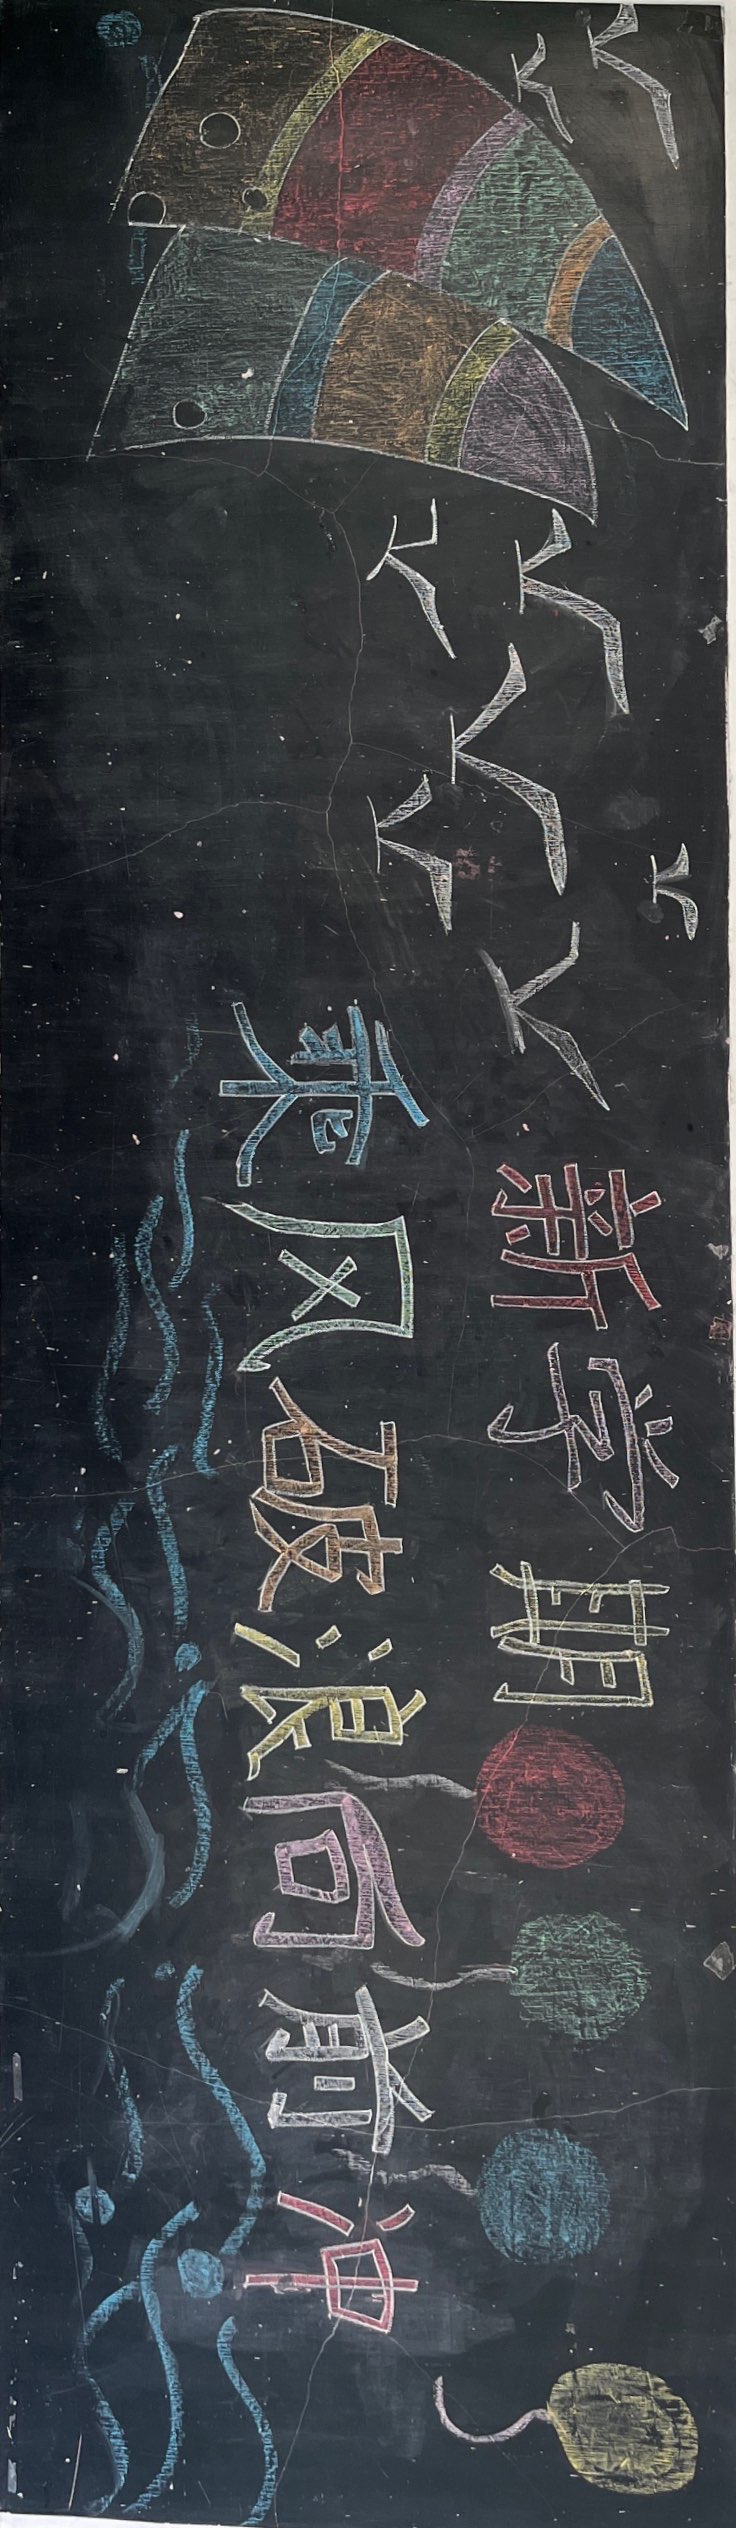 新学期
乘风破浪向前冲